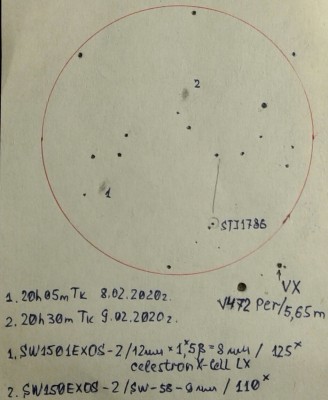 2
1
STI1786
VX
V472 Per/5,65m
1. 20h 05m Тк 8.02.2020г.
2. 20h 30m Тк 9.02.2020г.
1. SW1501EXOS-2/12мм × 1,5Б = 8 мм / 125×
celestron X-Cell LX
2. SW150EXOS-2/SW-58-9мм/110×